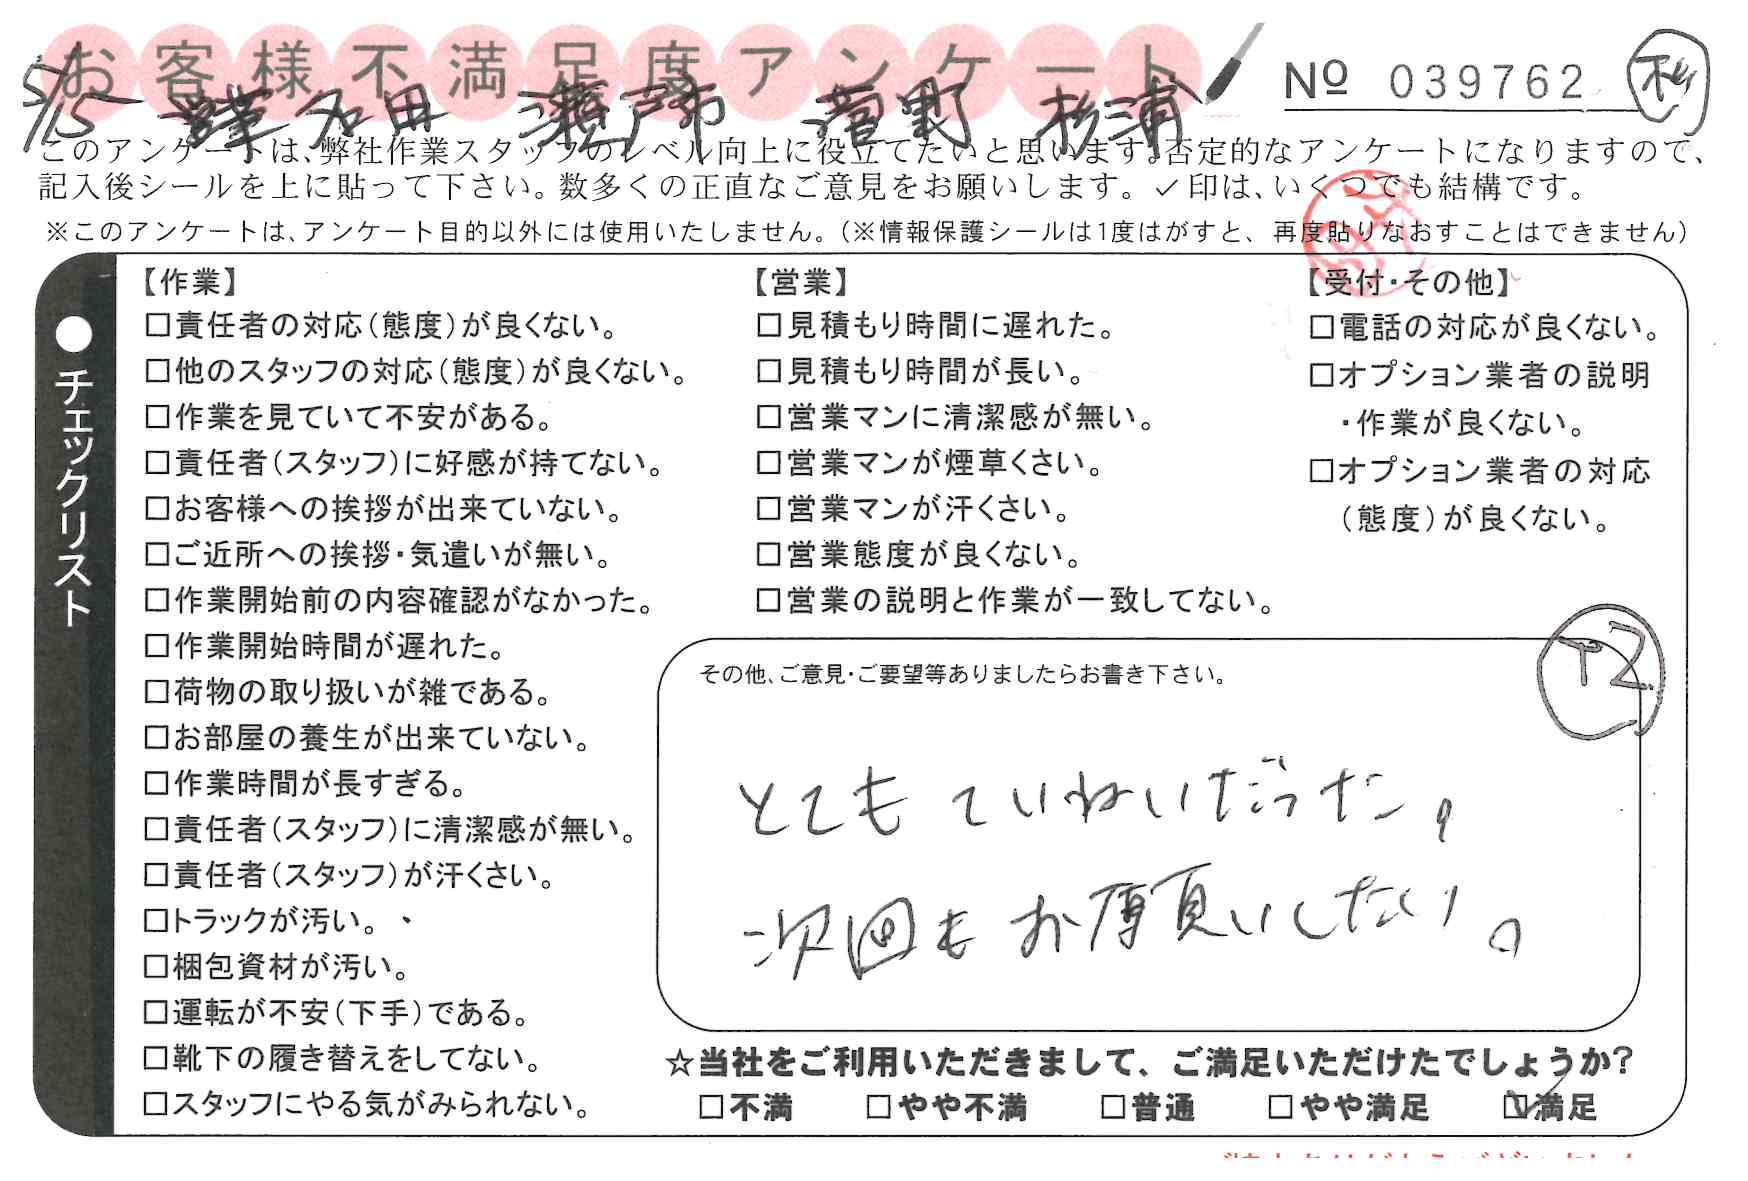 お客様不満足度アンケート
No 039762
5/15 営業 石田 瀬戸市 菅野 杉浦
このアンケートは、弊社作業スタッフのレベル向上に役立てたいと思います。否定的なアンケートになりますので、
記入後シールを上に貼って下さい。数多くの正直なご意見をお願いします。✓印は、いくつでも結構です。
※このアンケートは、アンケート目的以外には使用いたしません。(※情報保護シールは1度はがすと、再度貼りなおすことはできません)
●チェックリスト
【作業】
□責任者の対応(態度)が良くない。
□他のスタッフの対応(態度)が良くない。
□作業を見ていて不安がある。
□責任者(スタッフ)に好感が持てない。
□お客様への挨拶が出来ていない。
□ご近所への挨拶・気遣いが無い。
□作業開始前の内容確認がなかった。
□作業開始時間が遅れた。
□荷物の取り扱いが雑である。
□お部屋の養生が出来ていない。
□作業時間が長すぎる。
□責任者(スタッフ)に清潔感が無い。
□責任者(スタッフ)が汗くさい。
□トラックが汚い。
□梱包資材が汚い。
□運転が不安(下手)である。
□靴下の履き替えをしてない。
□スタッフにやる気がみられない。
【営業】
□見積もり時間に遅れた。
□見積もり時間が長い。
□営業マンに清潔感が無い。
□営業マンが煙草くさい。
□営業マンが汗くさい。
□営業態度が良くない。
□営業の説明と作業が一致してない。
【受付・その他】
□電話の対応が良くない。
□オプション業者の説明
・作業が良くない。
□オプション業者の対応
(態度)が良くない。
その他、ご意見・ご要望等ありましたらお書き下さい。
とてもていねいだった。
次回もお願いしたい。
☆当社をご利用いただきまして、ご満足いただけたでしょうか?
□不満 □やや不満 □普通 □やや満足 ☑満足